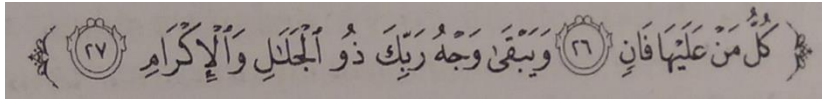 ﴿ كُلُّ مَنْ عَلَيْهَا فَانٍ ٢٦ وَيَبْقَىٰ وَجْهُ رَبِّكَ ذُو ٱلْجَلَٰلِ وَٱلْإِكْرَامِ ٢٧ ﴾